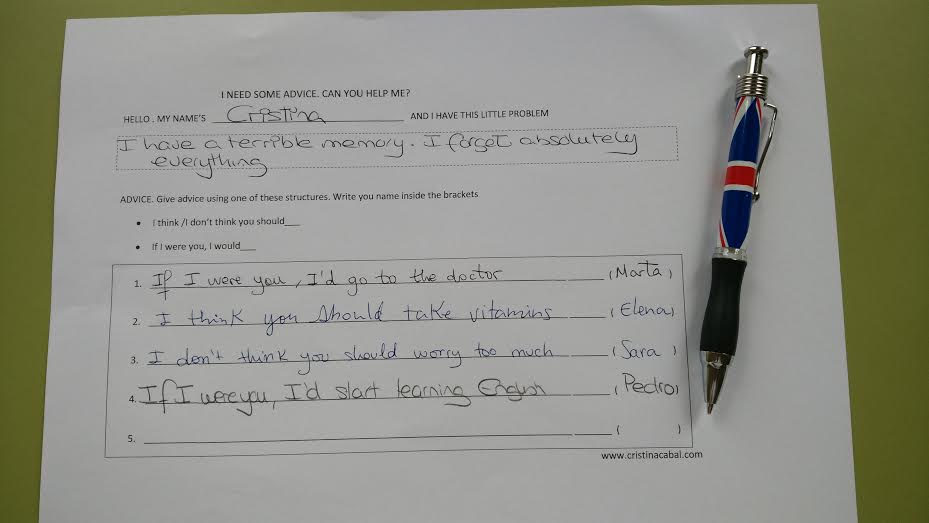 I NEED SOME ADVICE. CAN YOU HELP ME?
HELLO . MY NAME'S Cristina AND I HAVE THIS LITTLE PROBLEM
I have a terrible memory. I forget absolutely
everything
ADVICE. Give advice using one of these structures. Write you name inside the brackets
• I think /I don't think you should___
• If I were you, I would___
1. If I were you, I'd go to the doctor (Marta)
2. I think you should take vitamins (Elena)
3. I don't think you should worry too much (Sara )
4. If I were you, I'd start learning English (Pedro)
5. ( )
www.cristinacabal.com